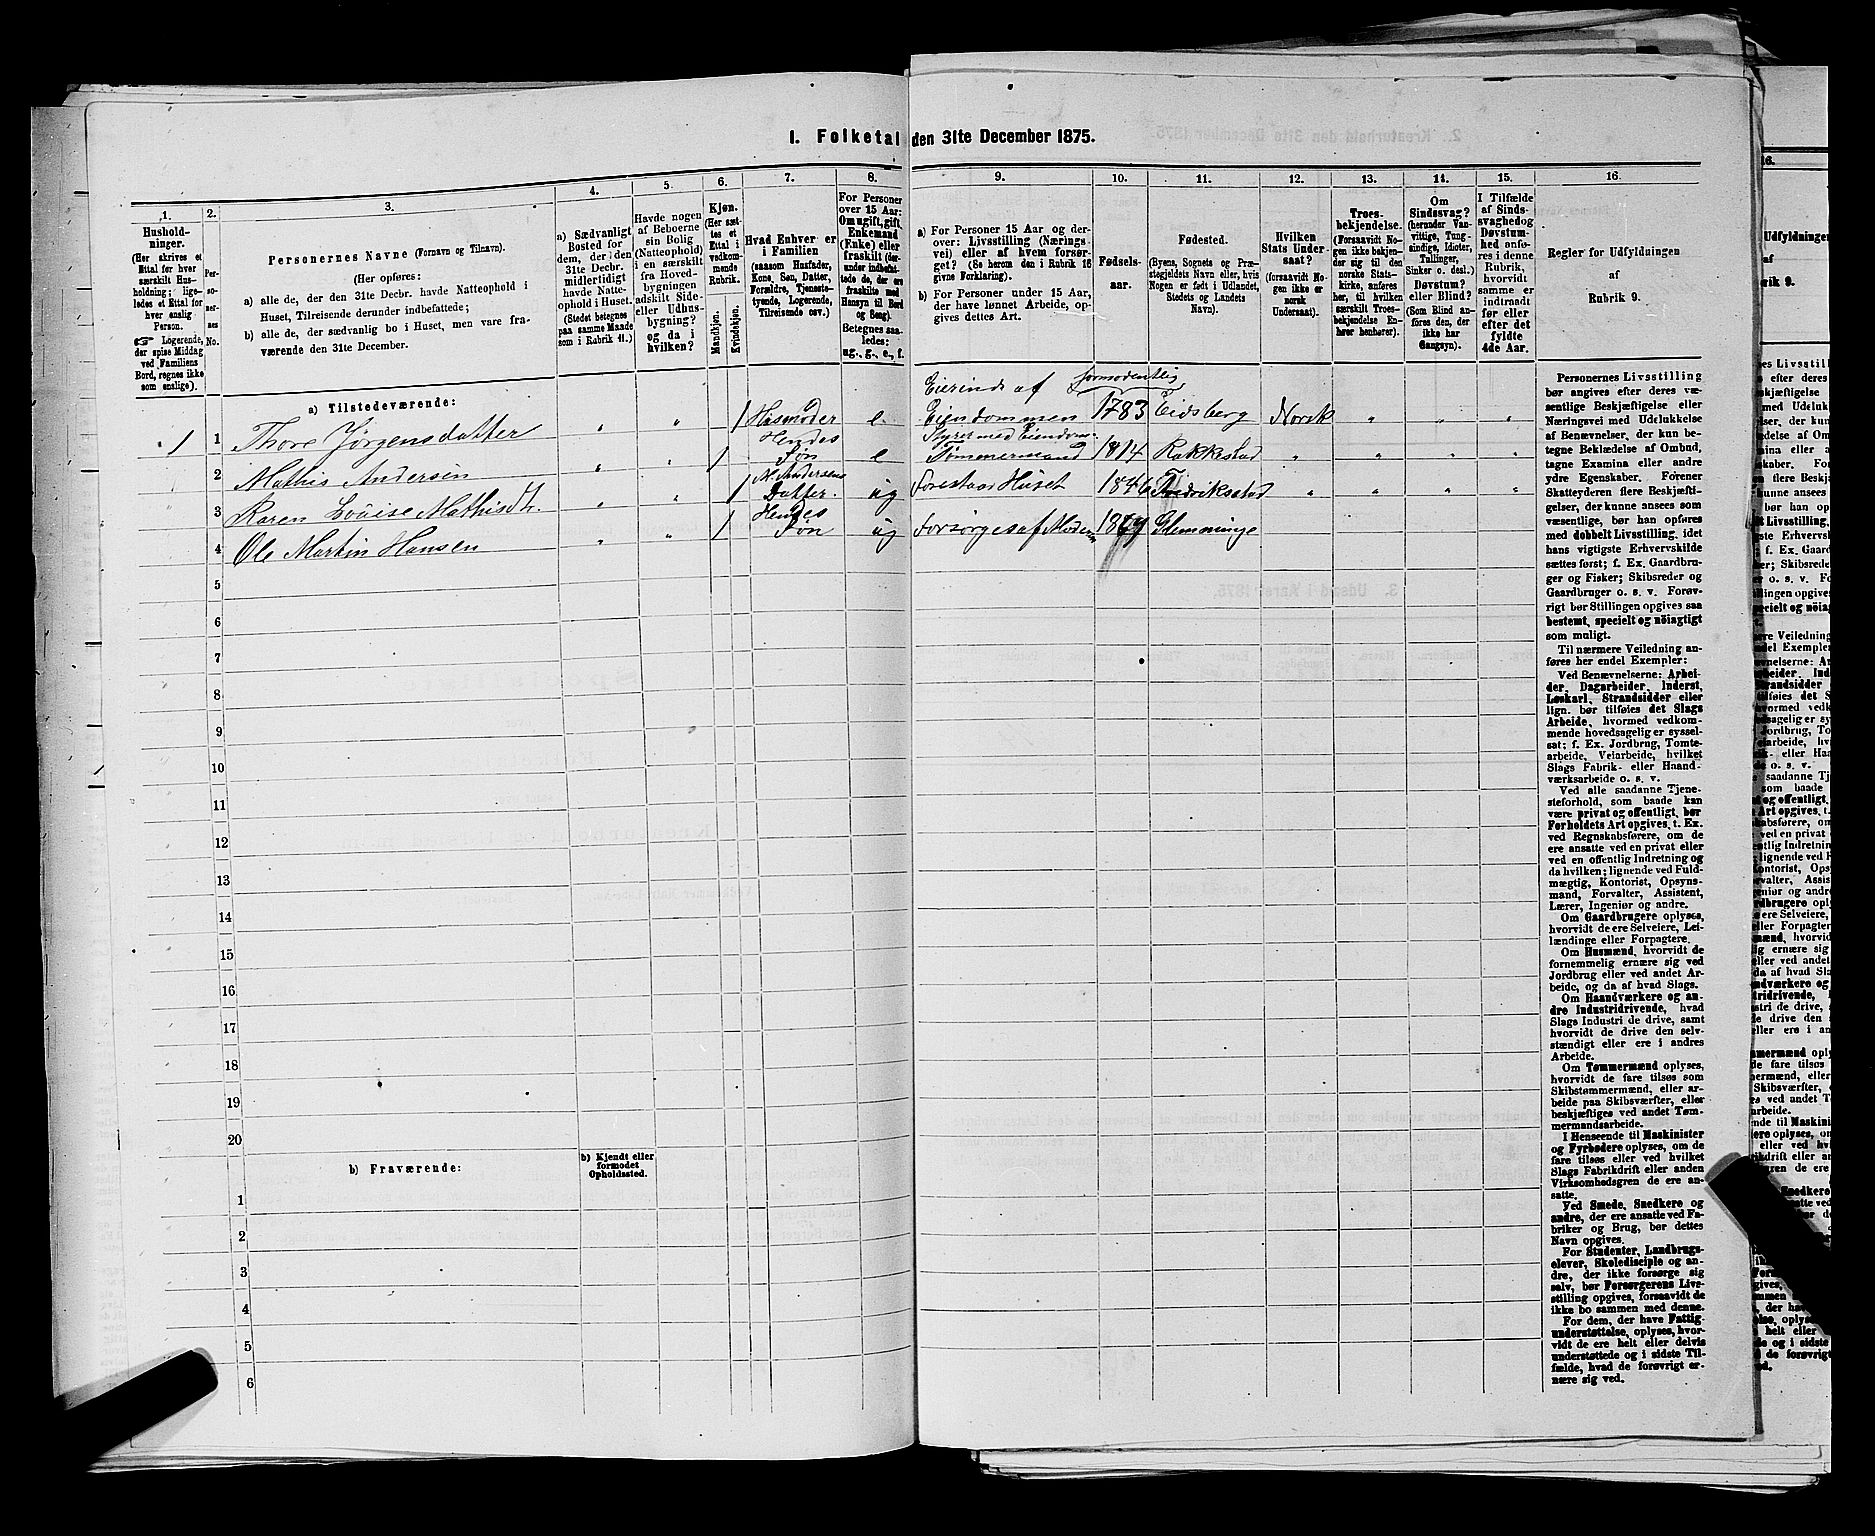 1. Folketal den 31te December 1875.
1.
Husholdninger.
(Her skrives et
Ettal for hver
særskilt Husholdning; ligeledes et Ettal for
hver enslig
Person.
☞ Logerende,
der spise Middag
ved Familiens
Bord, regnes ikke
som enslige).
2.
Personernes
No.
3.
Personernes Navne (Fornavn og Tilnavn).
(Her opføres:
a) alle de, der den 31te Decbr. havde Natteophold i
Huset, Tilreisende derunder indbefattede;
b) alle de, der sædvanlig bo i Huset, men vare fraværende den 31te December.
4.
a) Sædvanligt
Bosted for
dem, der den
31te Decbr.
midlertidigt
havde Natteophold i Huset.
(Stedet betegnes
paa samme Maade
som i Rubrik 11.)
5.
Havde nogen
af Beboerne
sin Bolig
(Natteophold)
i en særskilt
fra Hovedbygningen
adskilt Side-
eller Udhusbygning?
og da i
hvilken?
6.
Kjøn.
(Her sættes et
Ettal i
vedkommende
Rubrik.
Mandkjøn.
Kvindekjøn.
7.
Hvad Enhver er
i Familien
(saasom Husfader,
Kone, Søn, Datter,
Forældre, Tjenestetyende, Logerende,
Tilreisende osv.)
8.
For Personer
over 15 Aar:
Om ugift, gift,
Enkemand
(Enke) eller
fraskilt
Betegnes saaledes:
ug., g., e., f.
9.
a) For Personer 15 Aar og derover: Livsstilling (Næringsvei) eller af hvem forsørget? (Se herom den i Rubrik 16
givne Forklaring).
b) For Personer under 15 Aar,
der have lønnet Arbeide, opgives dettes Art.
10.
Fødselsaar.
11.
Fødested.
(Byens, Sognets og Præstegjeldets Navn eller, hvis
Nogen er født i Udlandet,
Stedets og Landets
Navn).
12.
Hvilken
Stats Undersaat?
(forsaavidt Nogen ikke er
norsk
Undersaat).
13.
Troesbekjendelse.
(Forsaavidt Nogen ikke bekjender sig til den
norske Statskirke, anføres
her, til hvilken
særskilt Troesbekjendelse Enhver henhører).
14.
Om
Sindssvag?
(herunder Vanvittige, Tungsindige, Idioter,
Tullinger,
Sinker o. desl.)
Døvstum?
eller Blind?
(Som Blind anføres den, der
ikke har
Gangsyn).
15.
I Tilfælde
af Sindssvaghed og
Døvstumhed anføres i denne
Rubrik,
hvorvidt
samme er
indtraadt
før eller
efter det
fyldte
4de Aar.
16.
Regler for Udfyldningen
af
Rubrik 9.
a) Tilstedeværende:
1 1 Thore Jørgensdatter „ „ 1 Husmoder e. Eierinde af Eiendommen formodentlig 1783 Eidsberg Norsk „ „ „
2 Mathis Andersen „ „ 1 Hendes Søn e Styrer med Eiendom. Tømmermand 1814 Rakkestad „ „ „ „
3 Karen Lovise Mathisdt. „ „ 1 M. Andersens Datter. ug Forestaar Huset 1846 Fredriksstad „ „ „ „
4 Ole Martin Hansen „ „ 1 Hendes Søn ug Forsørges af Moderen Glemminge
5
6
7
8
9
10
11
12
13
14
15
16
17
18
19
20
b) Fraværende:
b) Kjendt eller
formodet
Opholdssted.
1
2
3
4
5
6
Personernes Livsstilling
bør angives efter deres væsentlige Beskjæftigelse eller
Næringsvei med Udelukkelse
af Benævnelser, der kun betegne Beklædelse af Ombud,
tagne Examina eller andre
ydre Egenskaber. Forener
Skatteyderen flere Beskjæftigelser, der kunne ansees som
væsentlige, bør han opføres
med dobbelt Livsstilling, idet
hans vigtigste Erhvervskilde
sættes først; f. Ex. Gaardbruger og Fisker; Skibsreder og
Gaardbruger o. s. v. Forøvrigt bør Stillingen opgives saa
bestemt, specielt og nöiagtigt
som muligt.
Til nærmere Veiledning anføres her endel Exempler:
Ved Benævnelserne: Arbeider, Dagarbeider, Inderst,
Løskarl, Strandsidder eller
lign. bør tilføies det Slags
Arbeide, hvormed vedkommende hovedsagelig er sysselsat; f. Ex. Jordbrug, Tomtearbeide, Veiarbeide, hvilket
Slags Fabrik- eller Haandværksarbeide o. s. v.
Ved alle saadanne Tjenesteforhold, som baade kan
være privat og offentligt, bør
Forholdets Art opgives, t. Ex.
ved Regnskabsførere, om de
ere ansatte ved en privat eller
ved en offentlig Indretning og
da hvilken; lignende ved Fuldmægtig, Kontorist, Opsynsmand, Forvalter, Assistent,
Lærer, Ingeniør og andre.
Om Gaardbrugere oplyses,
hvorvidt de ere Selveiere, Leilændinge eller Forpagtere.
Om Husmænd, hvorvidt de
fornemmelig ernære sig ved
Jordbrug eller ved andet Arbeide, og da af hvad Slags.
Om Haandværkere og andre Industridrivende, hvad
Slags Industri de drive, samt
hvorvidt de drive den selvstændigt eller ere i andres
Arbeide.
Om Tømmermænd oplyses,
hvorvidt de fare tilsøs som
Skibstømmermænd, eller arbeide paa Skibsværfter, eller
beskjæftiges ved andet Tømmermandsarbeide.
I Henseende til Maskinister
og Fyrbødere oplyses, om de
fare tilsøs eller ved hvilket
Slags Fabrikdrift eller anden
Virksomhedsgren de ere ansatte.
Ved Smede, Snedkere og
andre, der ere ansatte ved Fabriker og Brug, bør dettes
Navn opgives.
For Studenter, Landbrugselever, Skoledisciple og andre, der ikke forsørge sig
selv, bør Forsørgerens Livsstilling opgives, forsaavidt de
ikke bo sammen med denne.
For dem, der have Fattigunderstøttelse, oplyses, hvorvidt de ere helt eller delvis
understøttede og i sidste Tilfælde, hvad de forøvrigt ernære sig ved.